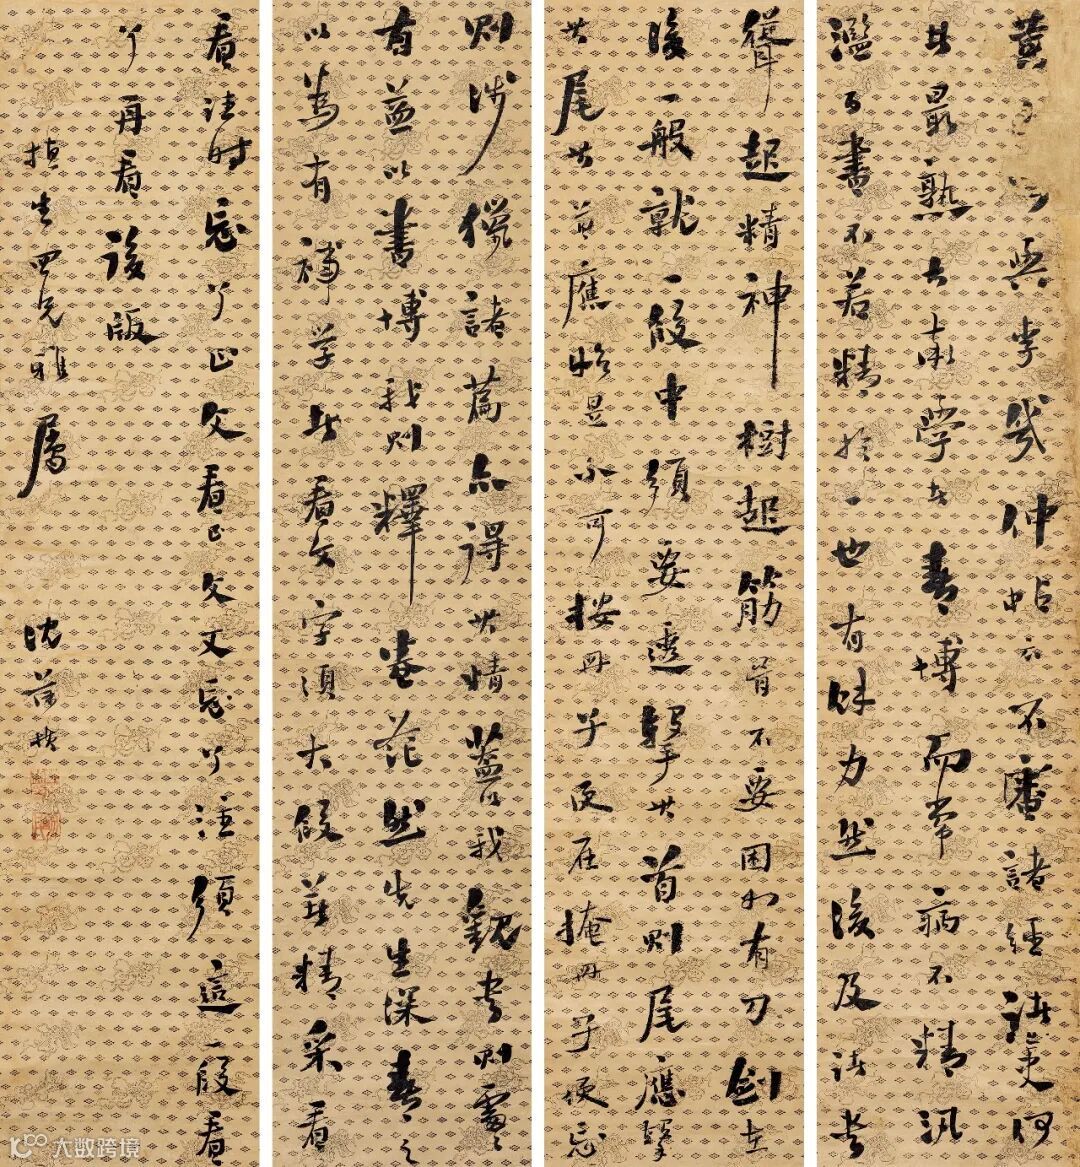 黃谷與李幾仲帖云不審諸經諸史何
者最熟大率學者喜博而常病不精汎
濫百書不若精於一也有餘力然後及諸書
聳起精神樹起筋骨不要困如有刀劍在
後一般就一段中須要透擊其首則尾應擊
其尾其首應始是不可按冊子便在掩冊子便忘
則涉獵諸篇亦得其精蓋以我觀書則處處
有益以書博我則釋卷茫然先生深喜之
以為有補學者看文字須大段著精采看
看註時忘了正文看正文又忘了注須這一段看
了再看後版
生四兄雅屬 沈曾植
大数跨境